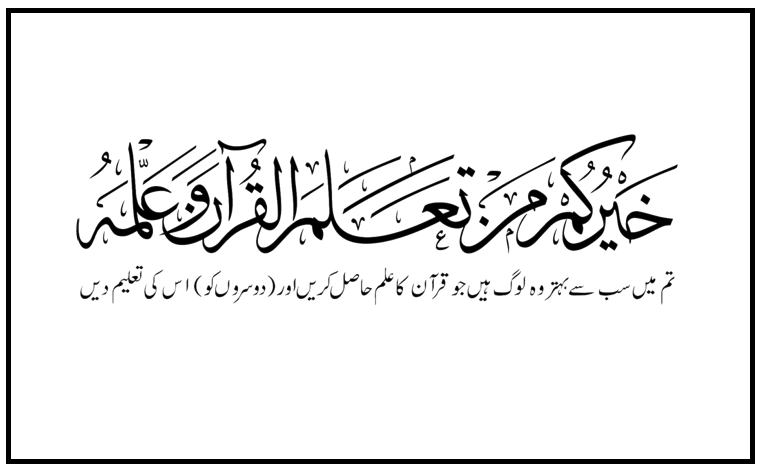 خَيْرُكُمْ مَنْ تَعَلَّمَ الْقُرْآنَ وَعَلَّمَهُ
تم میں سب سے بہتر وہ لوگ ہیں جو قرآن کا علم حاصل کریں اور (دوسروں کو) اس کی تعلیم دیں